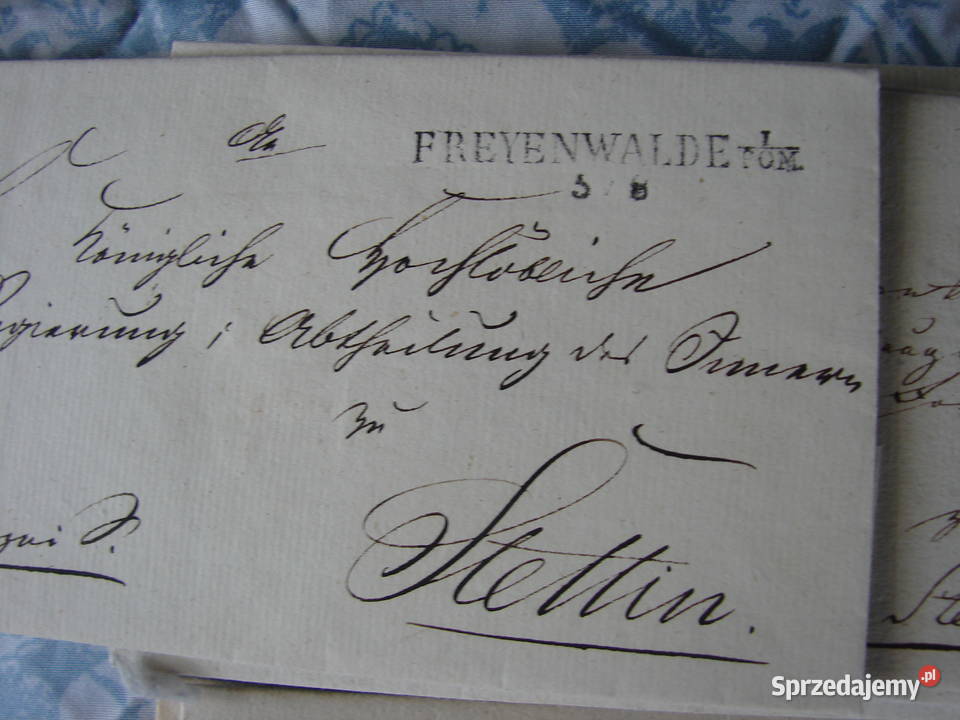 FREYENWALDE I/POM.
5 / 8
An
Königliche Hochlöbliche
Regierung; Abtheilung des Innern
zu
Stettin.
S.
Sprzedajemy.pl